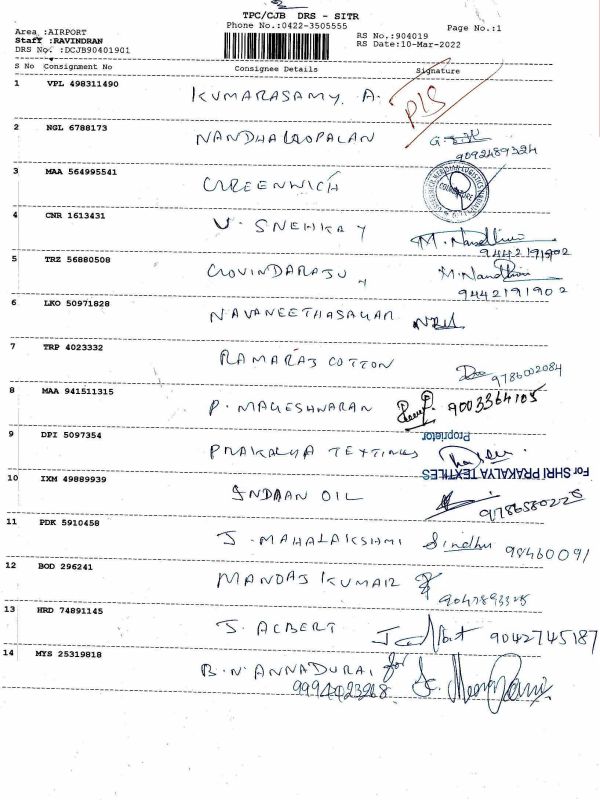 TPC/CJB DRS - SITR
Phone No.:0422-3505555
Page No.:1
Area :AIRPORT
Staff :RAVINDRAN
DRS No. :DCJB90401901
RS No.:904019
RS Date:10-Mar-2022
S No Consignment No Consignee Details Signature
1 VPL 498311490 KUMARASAMY. A. PLS
2 NGL 6788173 NANDHAGOPALAN
9092489324
3 MAA 564995541 GREENWICH
COIMBATORE
4 CNR 1613431 V. SNEHKAY M. Nandhini
9442191902
5 TRZ 56880508 GOVINDARAJU M. Nandhini
9442191902
6 LKO 50971828 NAVANEETHASAGAR
7 TRP 4023332 RAMARAJ COTTON
9786002084
8 MAA 941511315 P. MAGESHWARAN 9003364105
9 DPI 5097354 PRAKALYA TEXTILES
Proprietor
For SHRI PRAKALYA TEXTILES
10 IXM 49889939 INDIAN OIL
9786580228
11 PDK 5910458 J. MAHALAKSHMI Sindhu 98460091
12 BOD 296241 MANOAJ KUMAR
9047893325
13 HRD 74891145 J. ALBERT 9042745187
14 MYS 25319818 B.N. ANNADURAI for